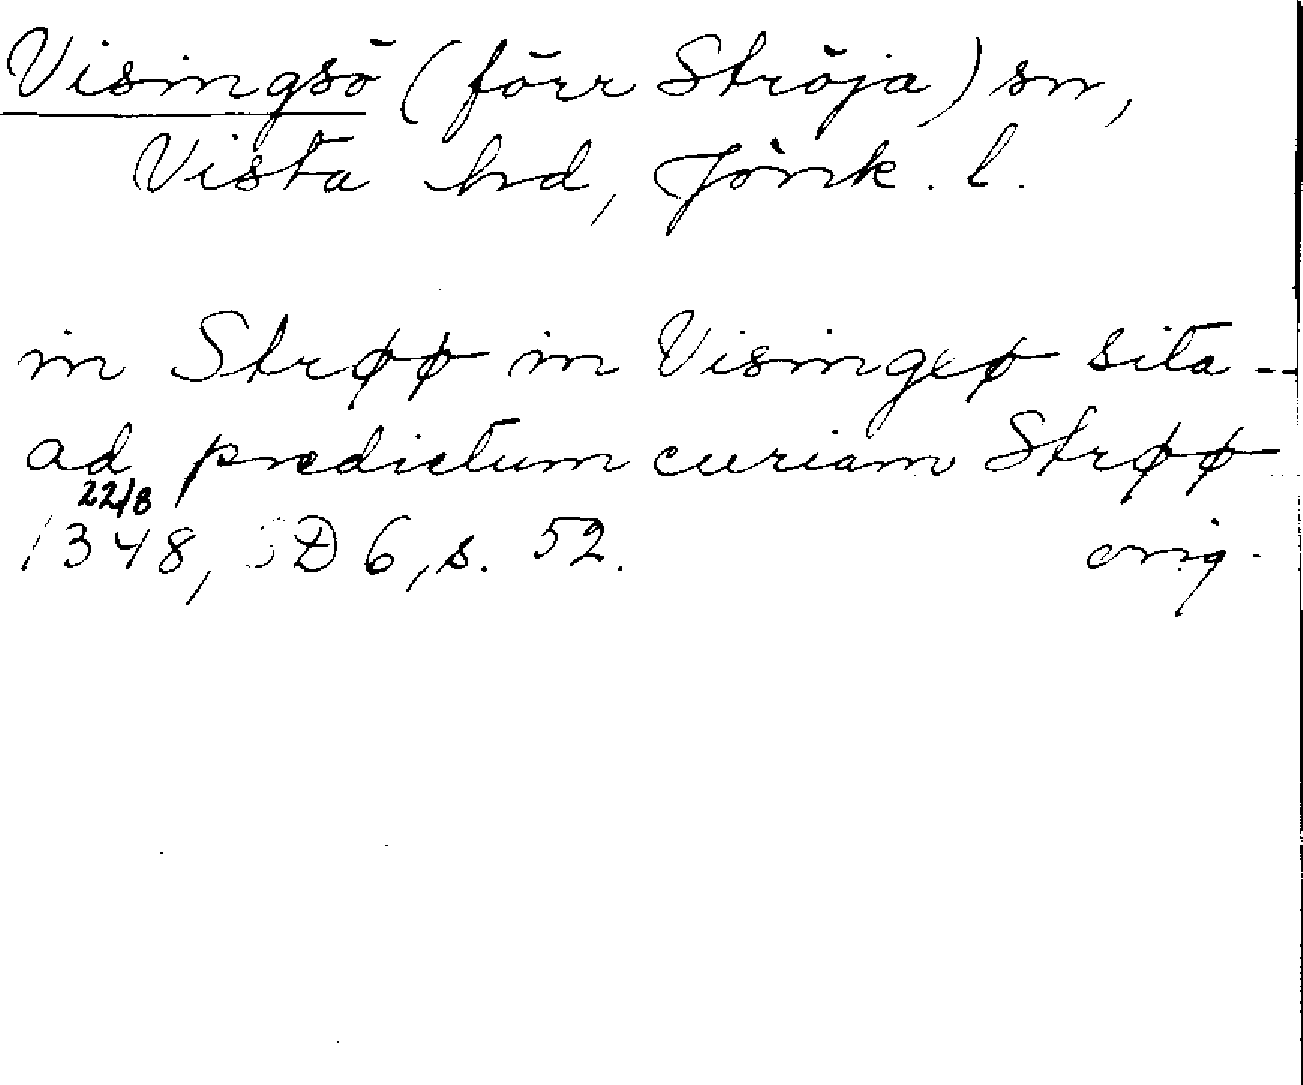 Visingsö (förr Ströja) sn,
Vista hd, Jönk. l.
in Strøø in Visingxø sita --
ad predictum curiam Strøø
22/8
1348, SD 6, s. 52. orig.